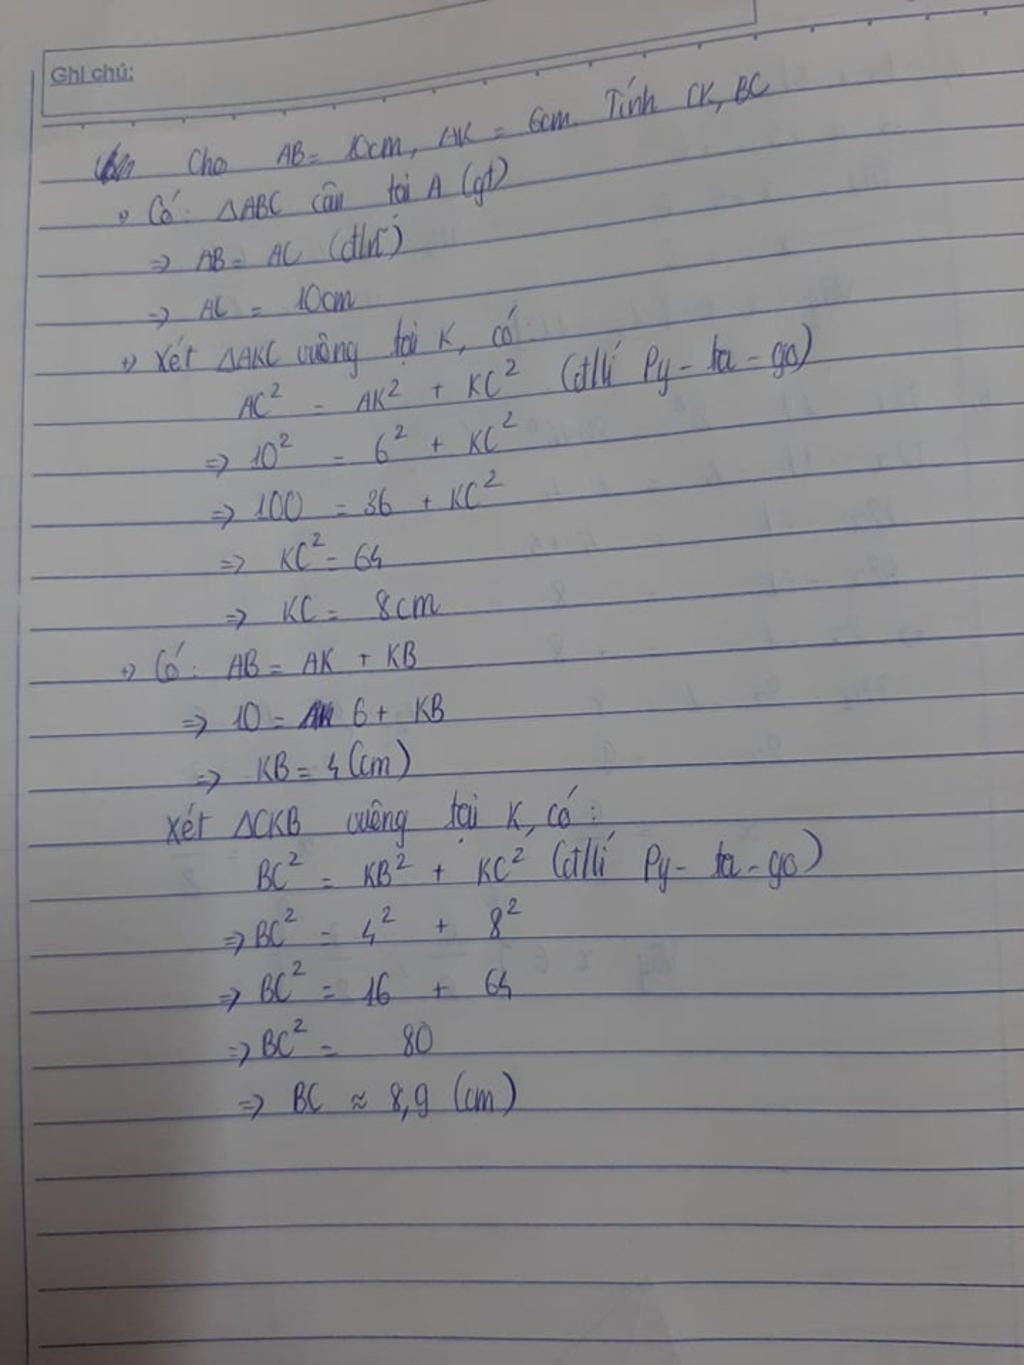 Ghi chú:
Cho AB= 10cm, AK = 6cm. Tính CK, BC
Có: ΔABC cân tại A (gt)
=> AB= AC (đ/n)
=> AC = 10cm
Xét ΔAKC vuông tại K, có:
AC² = AK² + KC² (đ/lí Py-ta-go)
=> 10² = 6² + KC²
=> 100 = 36 + KC²
=> KC² = 64
=> KC = 8cm
Có: AB = AK + KB
=> 10 = 6 + KB
=> KB = 4 (cm)
Xét ΔCKB vuông tại K, có:
BC² = KB² + KC² (đ/lí Py-ta-go)
=> BC² = 4² + 8²
=> BC² = 16 + 64
=> BC² = 80
=> BC ≈ 8,9 (cm)